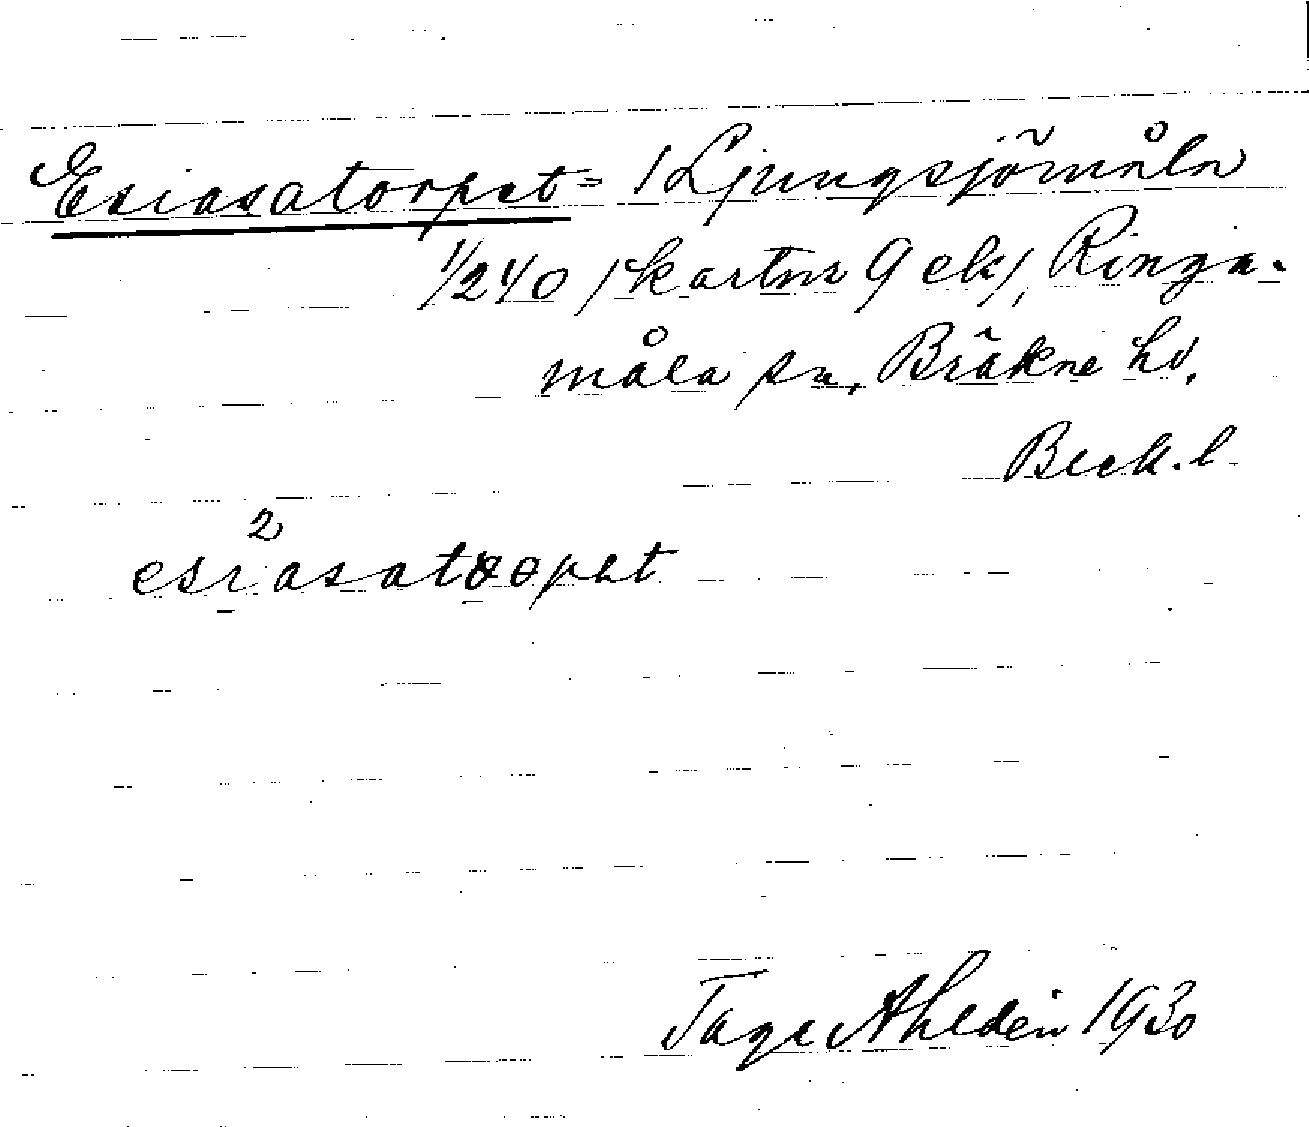 Esiasatorpet = /Ljungsjömåla
1/240 /kartor 9 ek/, Ringa-
måla sn, Bräkne hd,
Blek. l.
2
esiasatoopet
Tage Ahldén 1930